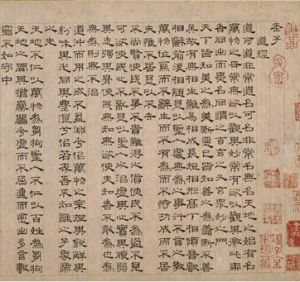 老子
道經
道可道非常道名可名非常名無名天地之始有名
萬物之母常無欲以觀其妙常有欲以觀其徼此兩
者同出而異名同謂之玄玄之又玄眾妙之門
天下皆知美之為美斯惡已皆知善之為善斯不善
已故有無相生難易相成長短相形高下相傾
無為之事行不言之教
萬物作而不辭生而不有為而不恃功成而不居
夫唯不居是以不去
不尚賢使民不爭不貴難得之貨使民不為盜不見
可欲使心不亂是以聖人之治虛其心實其腹弱其
志強其骨常使民無知無欲使夫知者不敢為也為
無為則無不治
道沖而用之或不盈淵兮似萬物之宗挫其銳解其
紛和其光同其塵湛兮似若存吾不知誰之子象帝
之先
天地不仁以萬物為芻狗聖人不仁以百姓為芻狗
天地之間其猶橐籥乎虛而不屈動而愈出多言數
窮不如守中